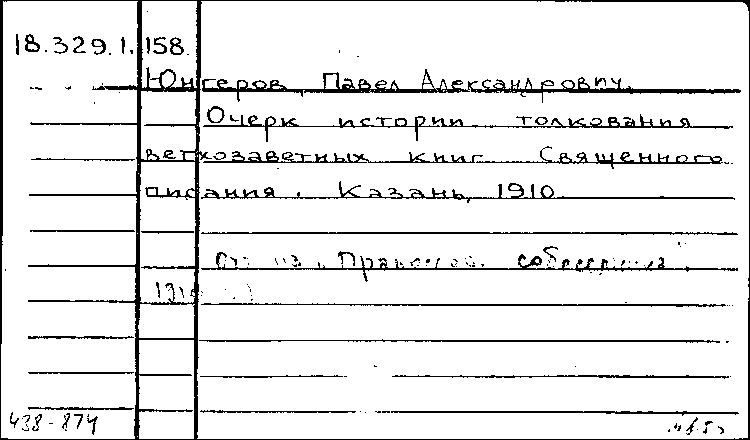 18.329.1.158.
Юнгеров, Павел Александрович.
Очерк истории толкования
ветхозаветных книг Священного
писания. Казань, 1910
из „Правосл. собеседника".
438-874